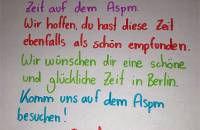 Zeit auf dem Aspm.
Wir hoffen, du hast diese Zeit
ebenfalls als schön empfunden.
Wir wünschen dir eine schöne
und glückliche Zeit in Berlin.
Komm uns auf dem Aspm
besuchen!